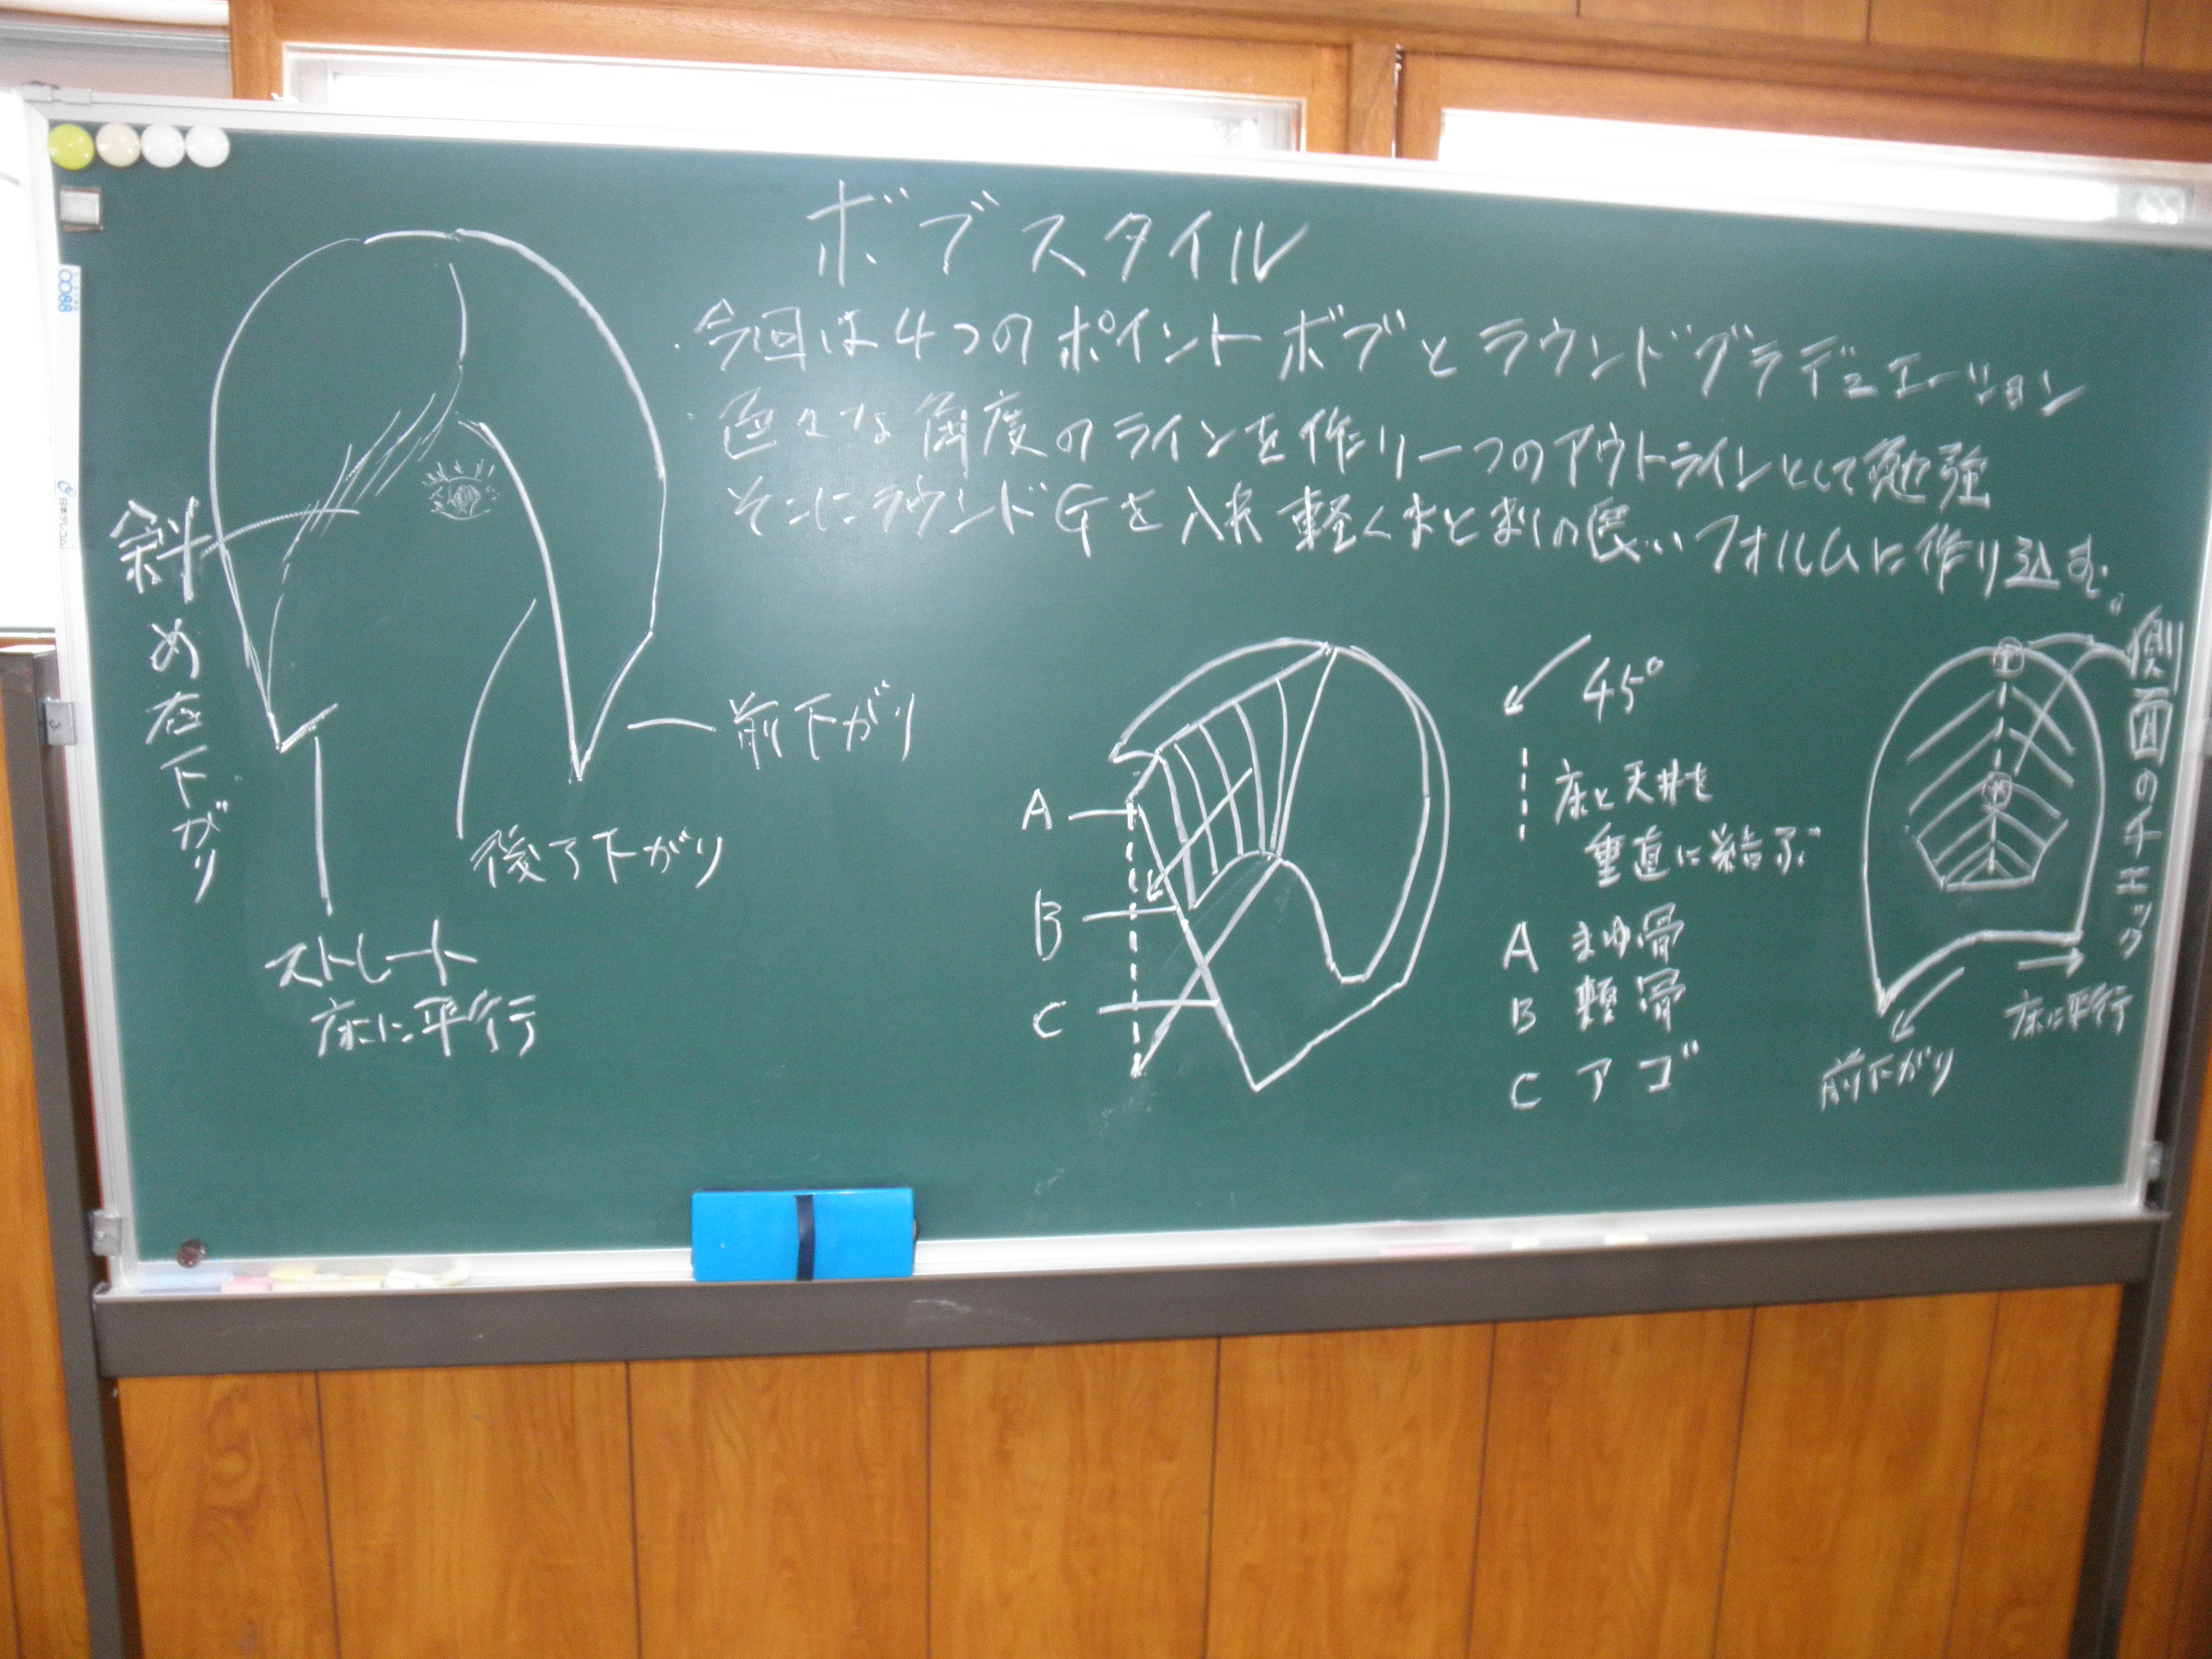 ボブスタイル
・今回は4つのポイントボブとラウンドグラデュエーション
・色々な角度のラインを作り一つのアウトラインとして勉強
そこにラウンドGを入れ軽くまとまりの良いフォルムに作り込む。
斜め左下がり
前下がり
後ろ下がり
ストレート
床に平行
A
B
C
45°
床と天井を
垂直に結ぶ
A まゆ骨
B 頬骨
C アゴ
側面のチェック
床に平行
前下がり